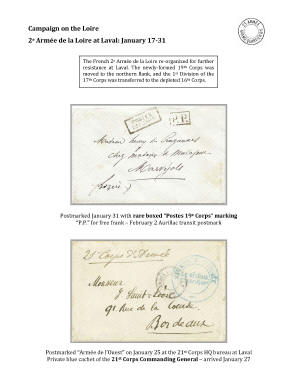 Campaign on the Loire
2e Armée de la Loire at Laval: January 17-31
The French 2e Armée de la Loire re-organized for further
resistance at Laval. The newly-formed 19th Corps was
moved to the northern Bank, and the 1st Division of the
17th Corps was transferred to the depleted 16th Corps.
P.P.
Monsieur
chez madame de
Marvejols
Lozère
Postmarked January 31 with rare boxed "Postes 19e Corps" marking
"P.P." for free frank – February 2 Aurillac transit postmark
21e Corps d'Armée
Monsieur
91 Rue de la
Bordeaux
Postmarked "Armée de l'Ouest" on January 25 at the 21st Corps HQ bureau at Laval
Private blue cachet of the 21st Corps Commanding General – arrived January 27